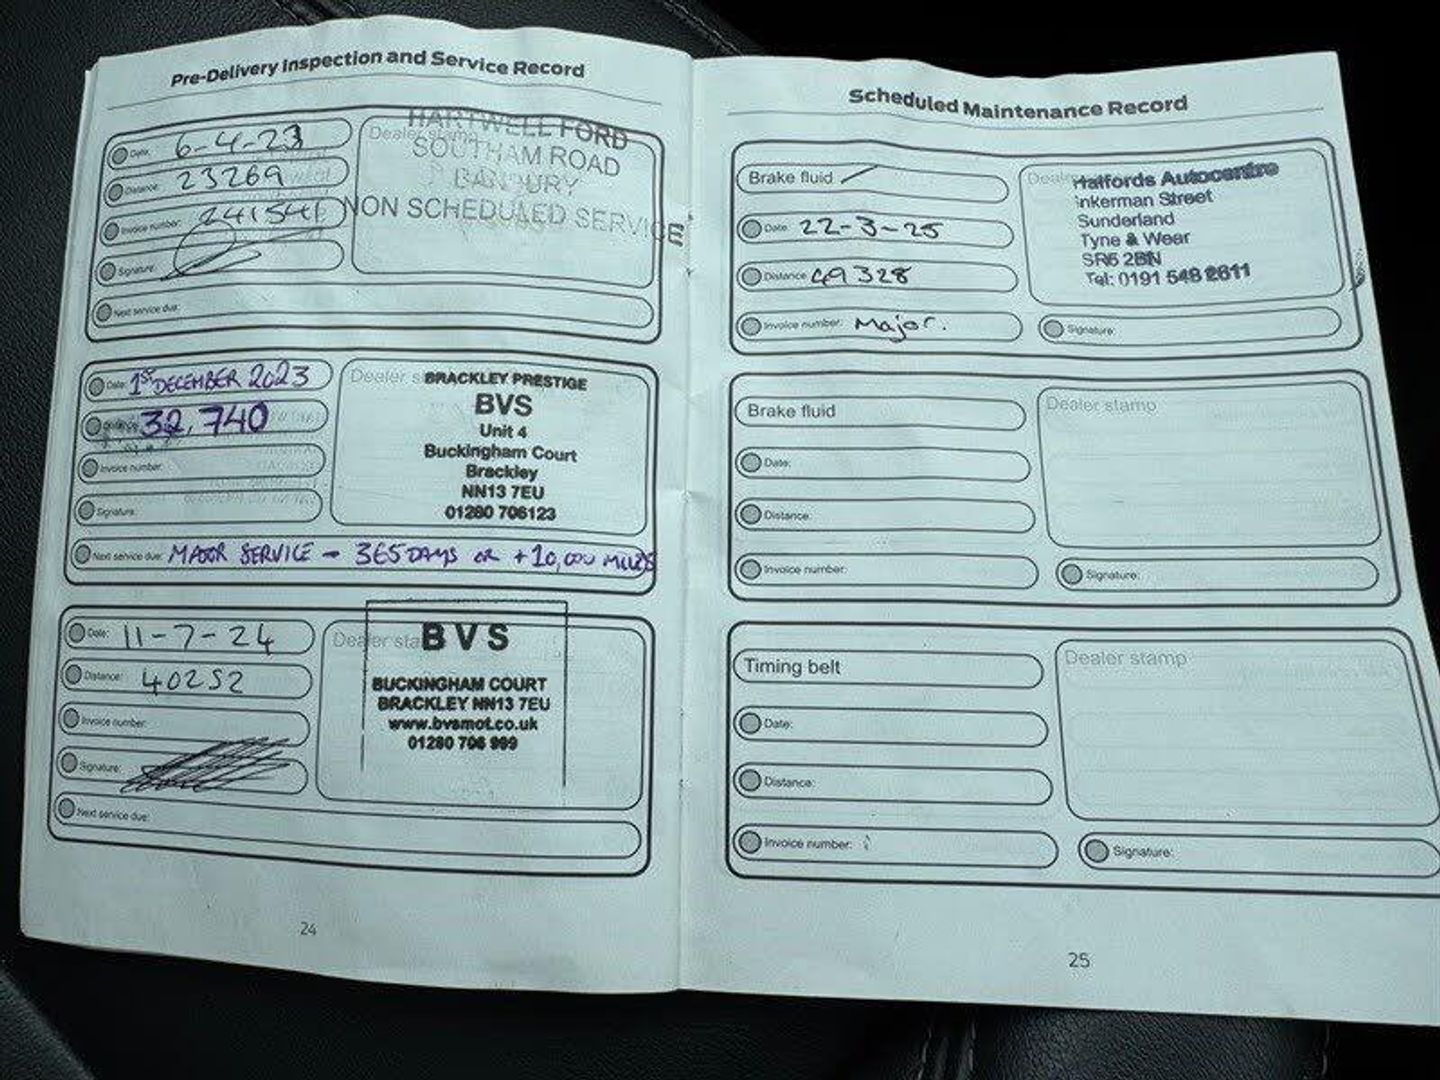 Pre-Delivery Inspection and Service Record
Date: 6-4-23
Distance: 23269
Invoice number: 241541
Signature:
Next service due:
Dealer stamp
HARTWELL FORD
SOUTHAM ROAD
BANBURY
NON SCHEDULED SERVICE
Date: 1ST DECEMBER 2023
Distance: 32,740
Invoice number:
Signature:
Dealer stamp
BRACKLEY PRESTIGE
BVS
Unit 4
Buckingham Court
Brackley
NN13 7EU
01280 706123
Next service due: MAJOR SERVICE - 365 DAYS OR +10,000 MILES
Date: 11-7-24
Distance: 40252
Invoice number:
Signature:
Dealer stamp
BVS
BUCKINGHAM COURT
BRACKLEY NN13 7EU
www.bvsmot.co.uk
01280 706 999
Next service due:
24
Scheduled Maintenance Record
Brake fluid /
Date: 22-3-25
Distance: 49328
Invoice number: Major.
Halfords Autocentre
Inkerman Street
Sunderland
Tyne & Wear
SR5 2BN
Tel: 0191 548 2611
Signature:
Brake fluid
Date:
Distance:
Invoice number:
Dealer stamp
Signature:
Timing belt
Date:
Distance:
Invoice number:
Dealer stamp
Signature:
25